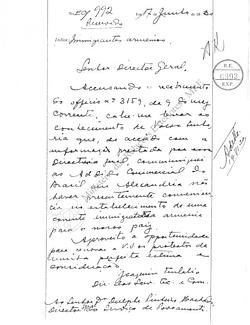 992
17 Junho
Immigrantes armenios
Senhor Director Geral,
Accusando o recebimento
do officio nº 3159, de 9 do mez
corrente, cabe-me levar ao
conhecimento de Vossa Senho-
ria que, de accordo com a
informação prestada por essa
Directoria Geral, communiquei
ao Addido Commercial do
Brasil em Alexandria não
haver presentemente convenien-
cia no estabelecimento de uma
corrente immigratoria armenia
para o nosso paiz.
Aproveito a opportunidade
para renovar a V.S. os protestos da
minha perfeita estima e
consideração.
Joaquim Eulalio
Ao Senhor
Director do Serviço de Povoamento
D.E.
6992
EXP.